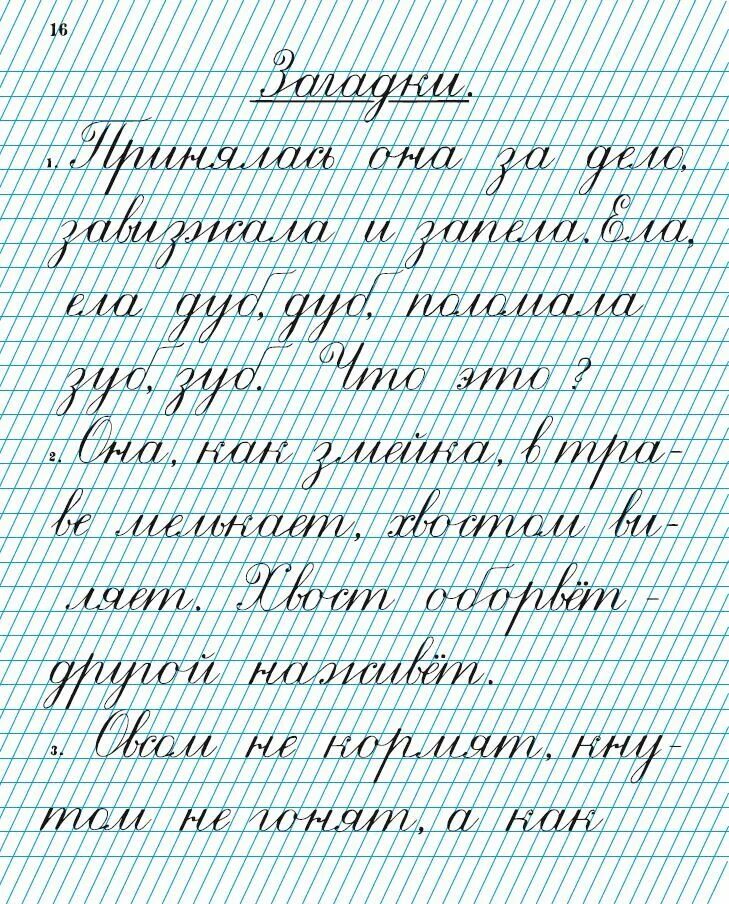 16
Загадки.
1. Принялась она за дело,
завизжала и запела. Ела,
ела дуб, дуб, поломала
зуб, зуб. Что это?
2. Она, как змейка, в тра-
ве мелькает, хвостом ви-
ляет. Хвост оборвёт -
другой наживёт.
3. Овсом не кормят, кну-
том не гонят, а как